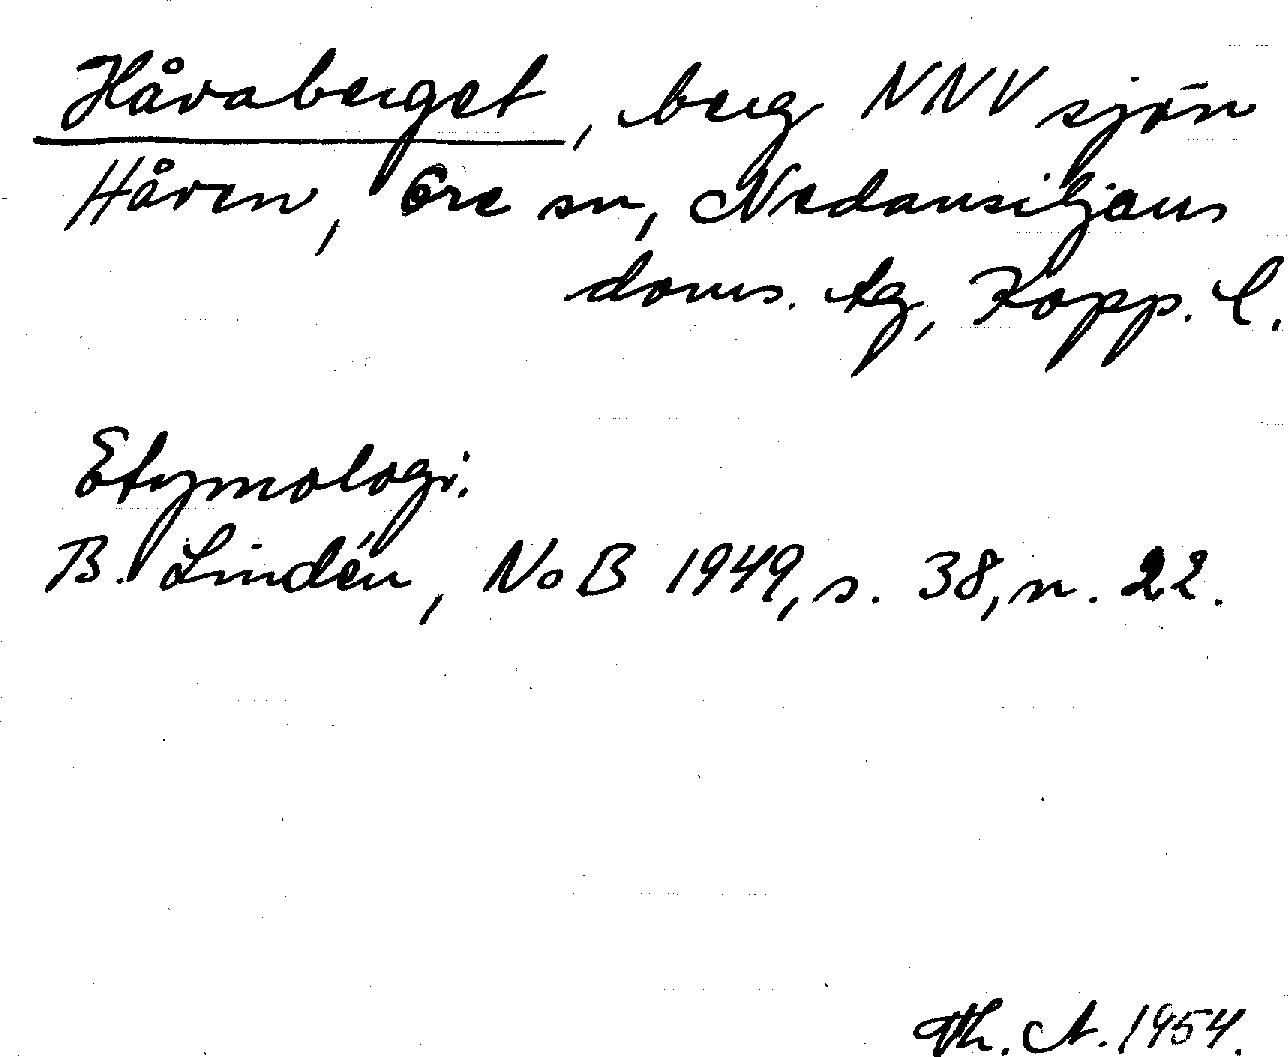 Håvaberget, berg NNV sjön
Håven, Ore sn, Nedansiljans
doms. tg, Kopp. l.
Etymologi:
B. Lindén, NoB 1949, s. 38, n. 22.
Th. A. 1954.